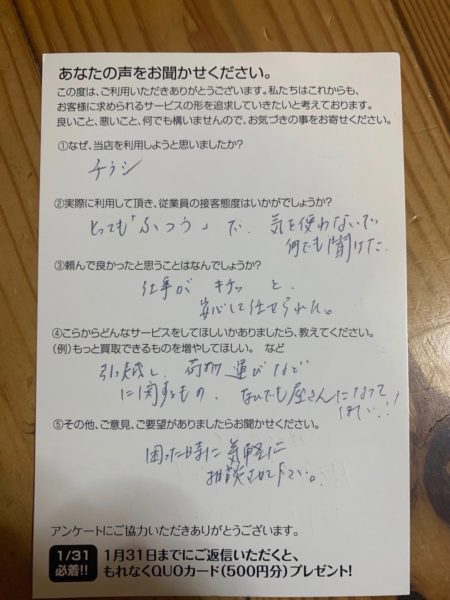 あなたの声をお聞かせください。
この度は、ご利用いただきありがとうございます。私たちはこれからも、
お客様に求められるサービスの形を追求していきたいと考えております。
良いこと、悪いこと、何でも構いませんので、お気づきの事をお寄せください。
①なぜ、当店を利用しようと思いましたか?
チラシ
②実際に利用して頂き、従業員の接客態度はいかがでしょうか?
とっても「ふつう」で、気を使わないで
何でも聞けた。
③頼んで良かったと思うことはなんでしょうか?
仕事が キチッ と、
安心して任せられた。
④こらからどんなサービスをしてほしいかありましたら、教えてください。
(例)もっと買取できるものを増やしてほしい。 など
引っ越し、荷物運びなど
に関するもの、なんでも屋さんになって
ほしい!!
⑤その他、ご意見、ご要望がありましたらお聞かせください。
困った時に気軽に
相談させて下さい。
アンケートにご協力いただきありがとうございます。
1/31
必着!!
1月31日までにご返信いただくと、
もれなくQUOカード(500円分)プレゼント!